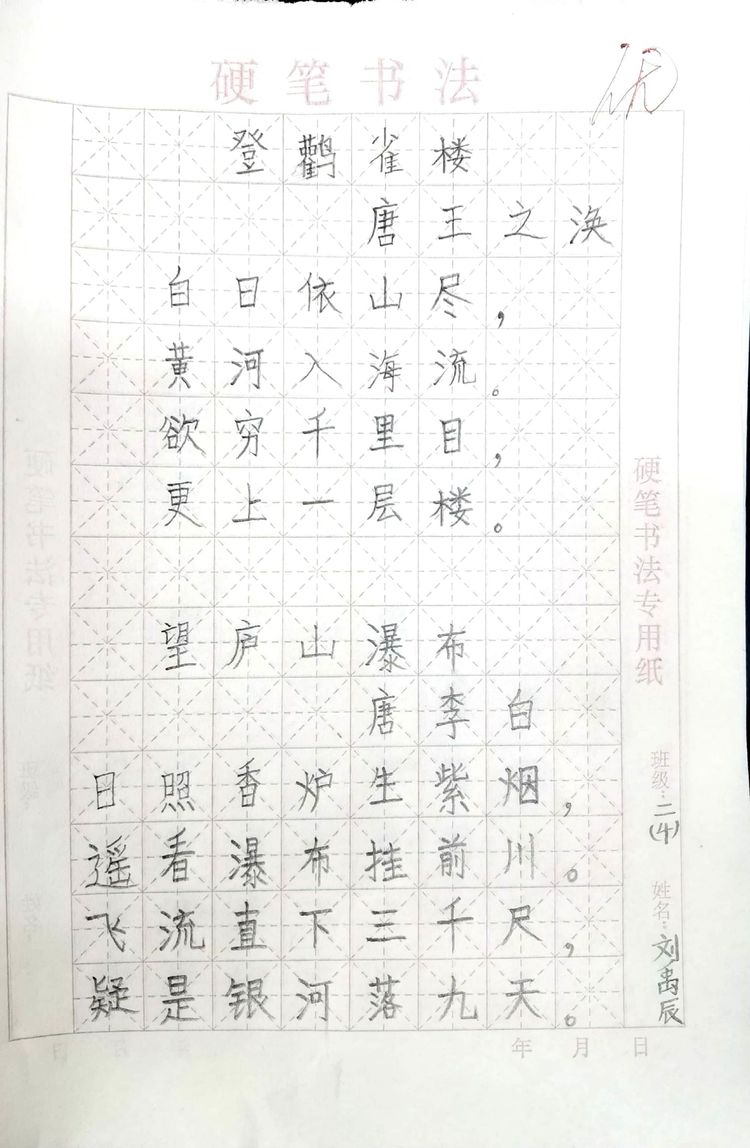 硬笔书法
优
登鹳雀楼
唐王之涣
白日依山尽，
黄河入海流。
欲穷千里目，
更上一层楼。
望庐山瀑布
唐李白
日照香炉生紫烟，
遥看瀑布挂前川。
飞流直下三千尺，
疑是银河落九天。
硬笔书法专用纸
班级：二(4)
姓名：刘禹辰
年 月 日